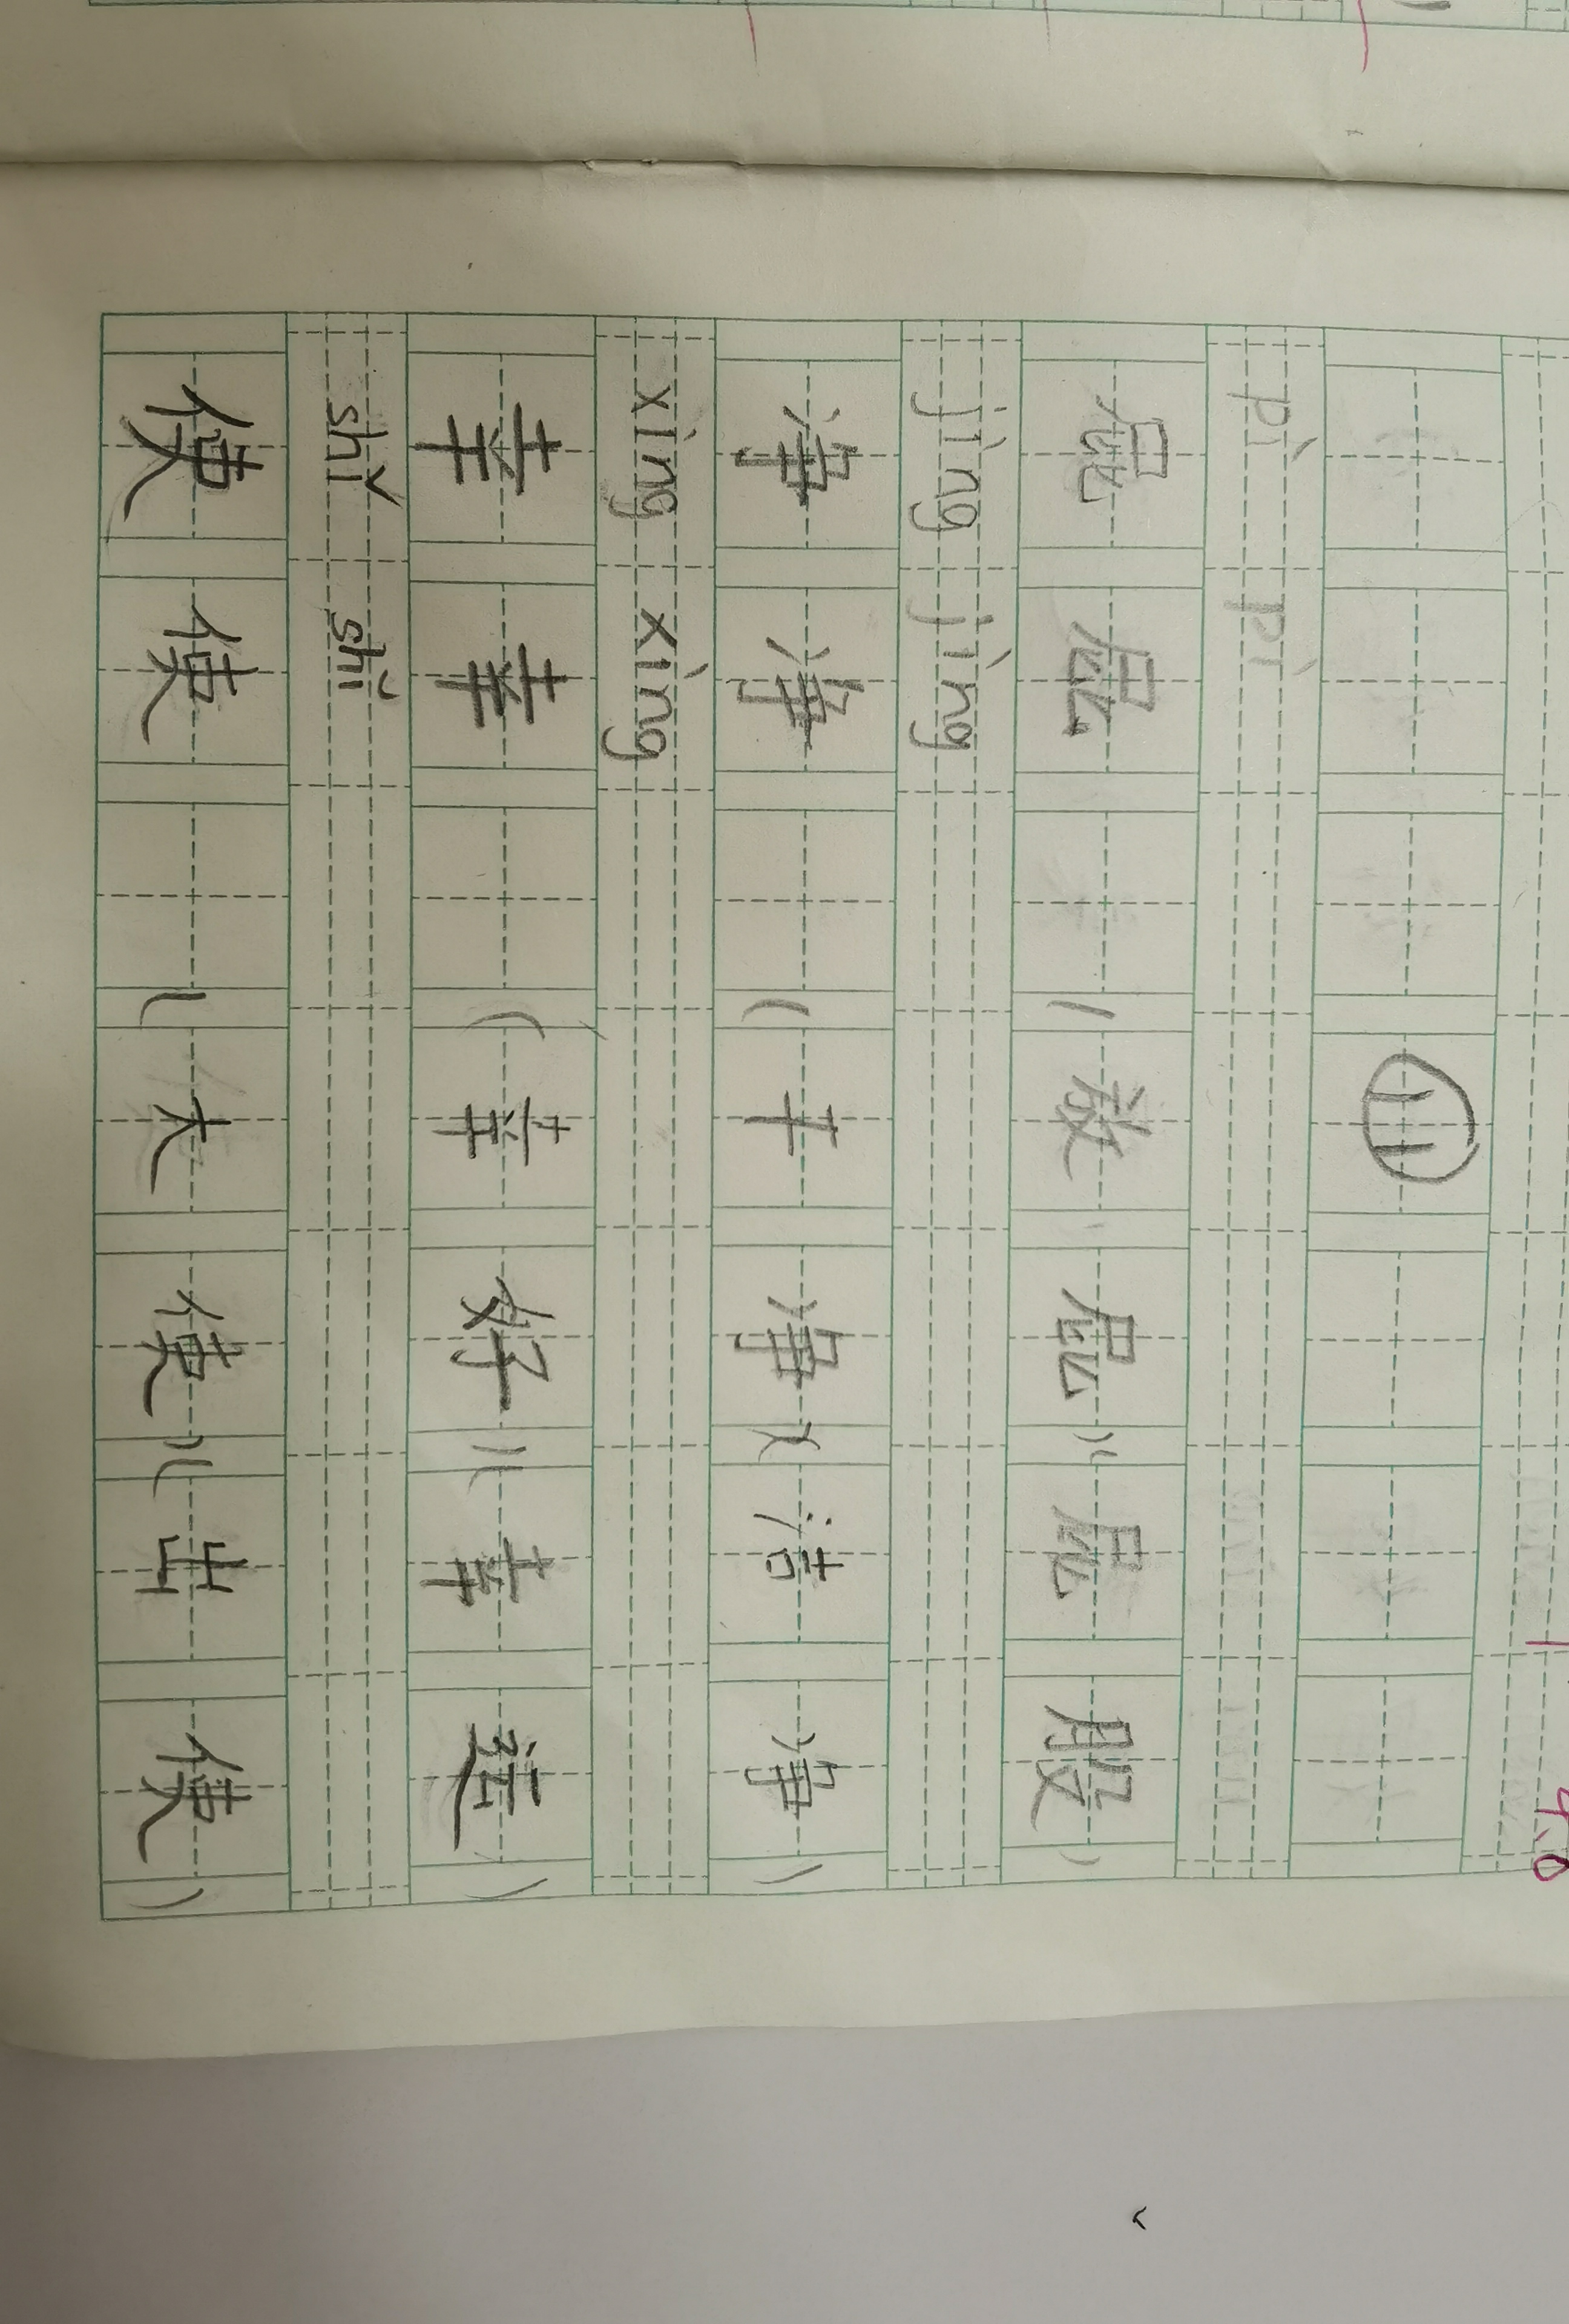 ⑪
pì pì
屁 屁 (放屁)(屁股)
jìng jìng
净 净 (干净)(洁净)
xìng xìng
幸 幸 (幸好)(幸运)
shǐ shǐ
使 使 (大使)(出使)